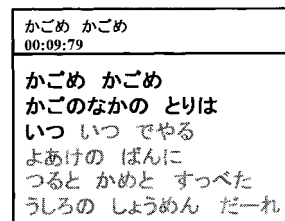 かごめ かごめ
00:09:79
かごめ かごめ
かごのなかの とりは
いつ いつ でやる
よあけの ばんに
つると かめと すっべた
うしろの しょうめん だーれ